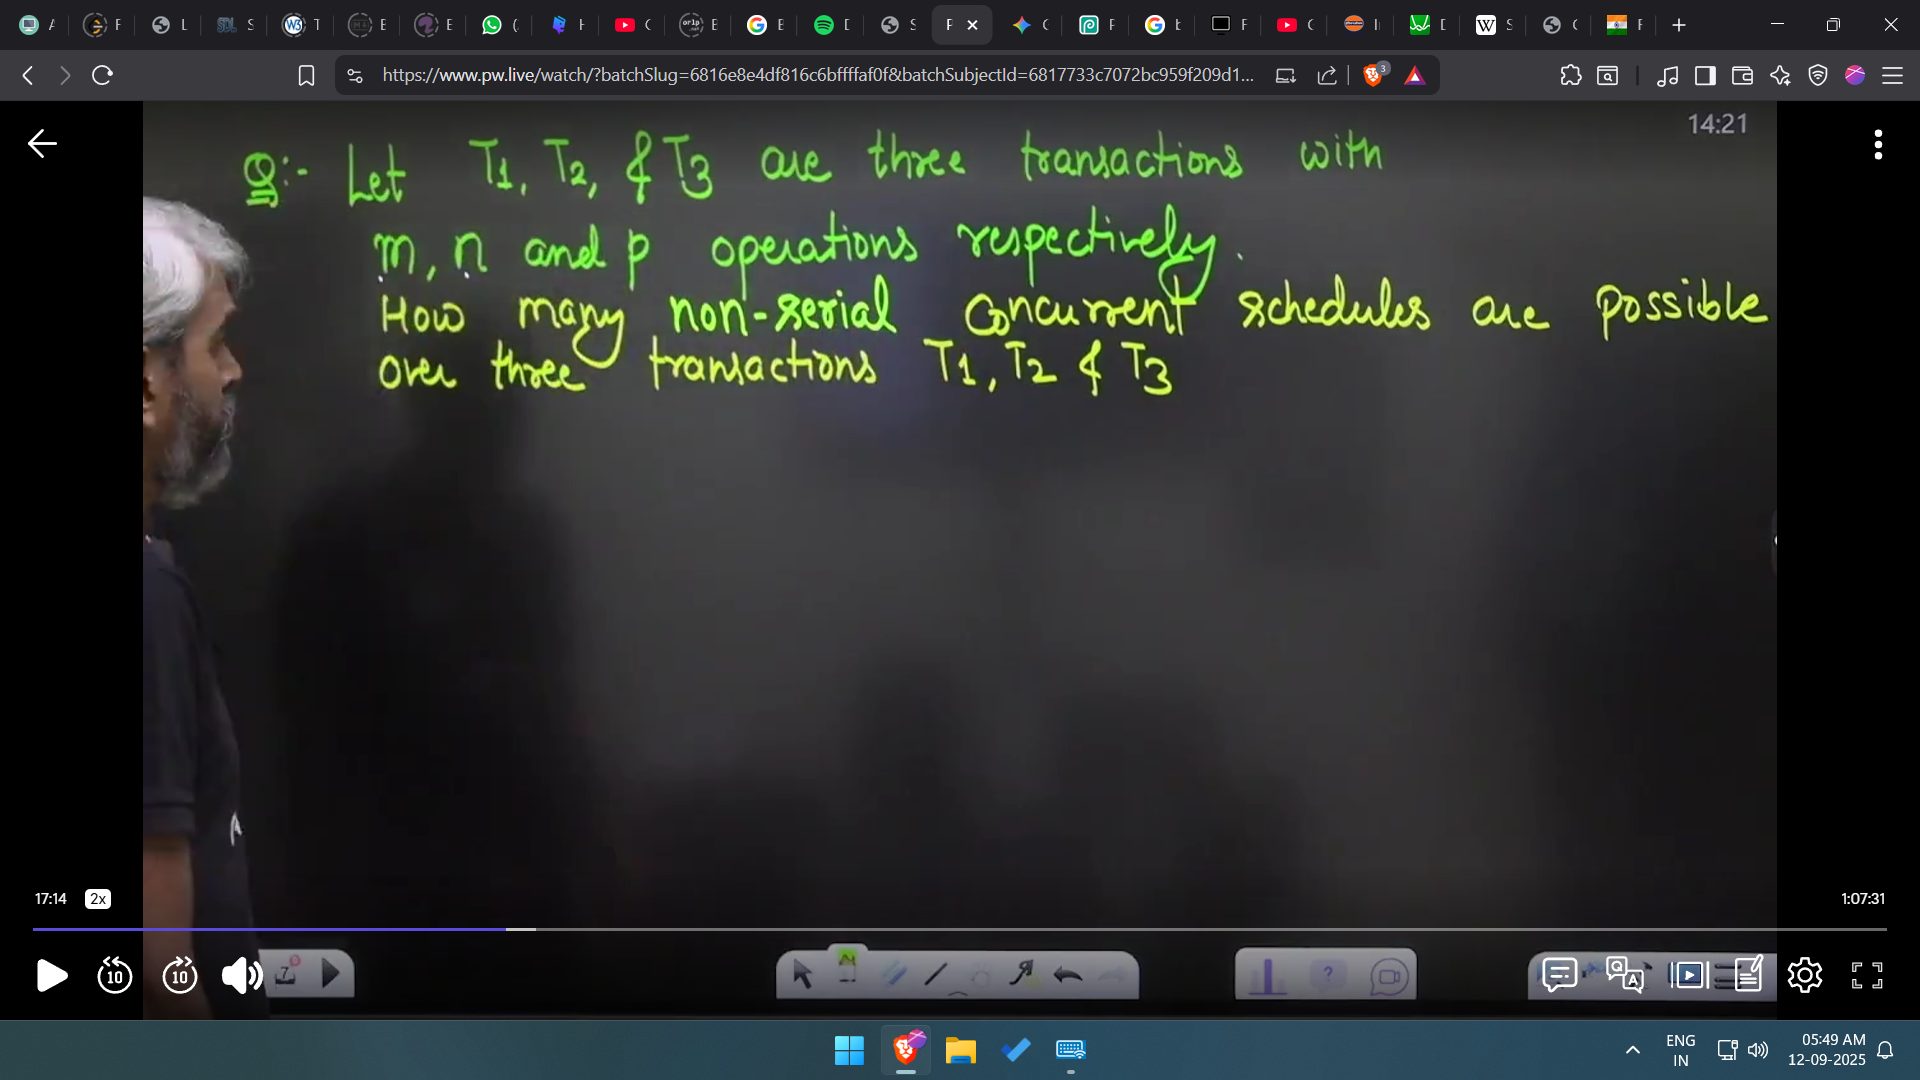 https://www.pw.live/watch/?batchSlug=6816e8e4df816c6bffffaf0f&batchSubjectId=6817733c7072bc959f209d1...
3
14:21
Q:- Let T1, T2, & T3 are three transactions with
m, n and p operations respectively.
How many non-serial concurrent schedules are possible
over three transactions T1, T2 & T3
17:14 2x
1:07:31
10 10
ENG
IN
05:49 AM
12-09-2025